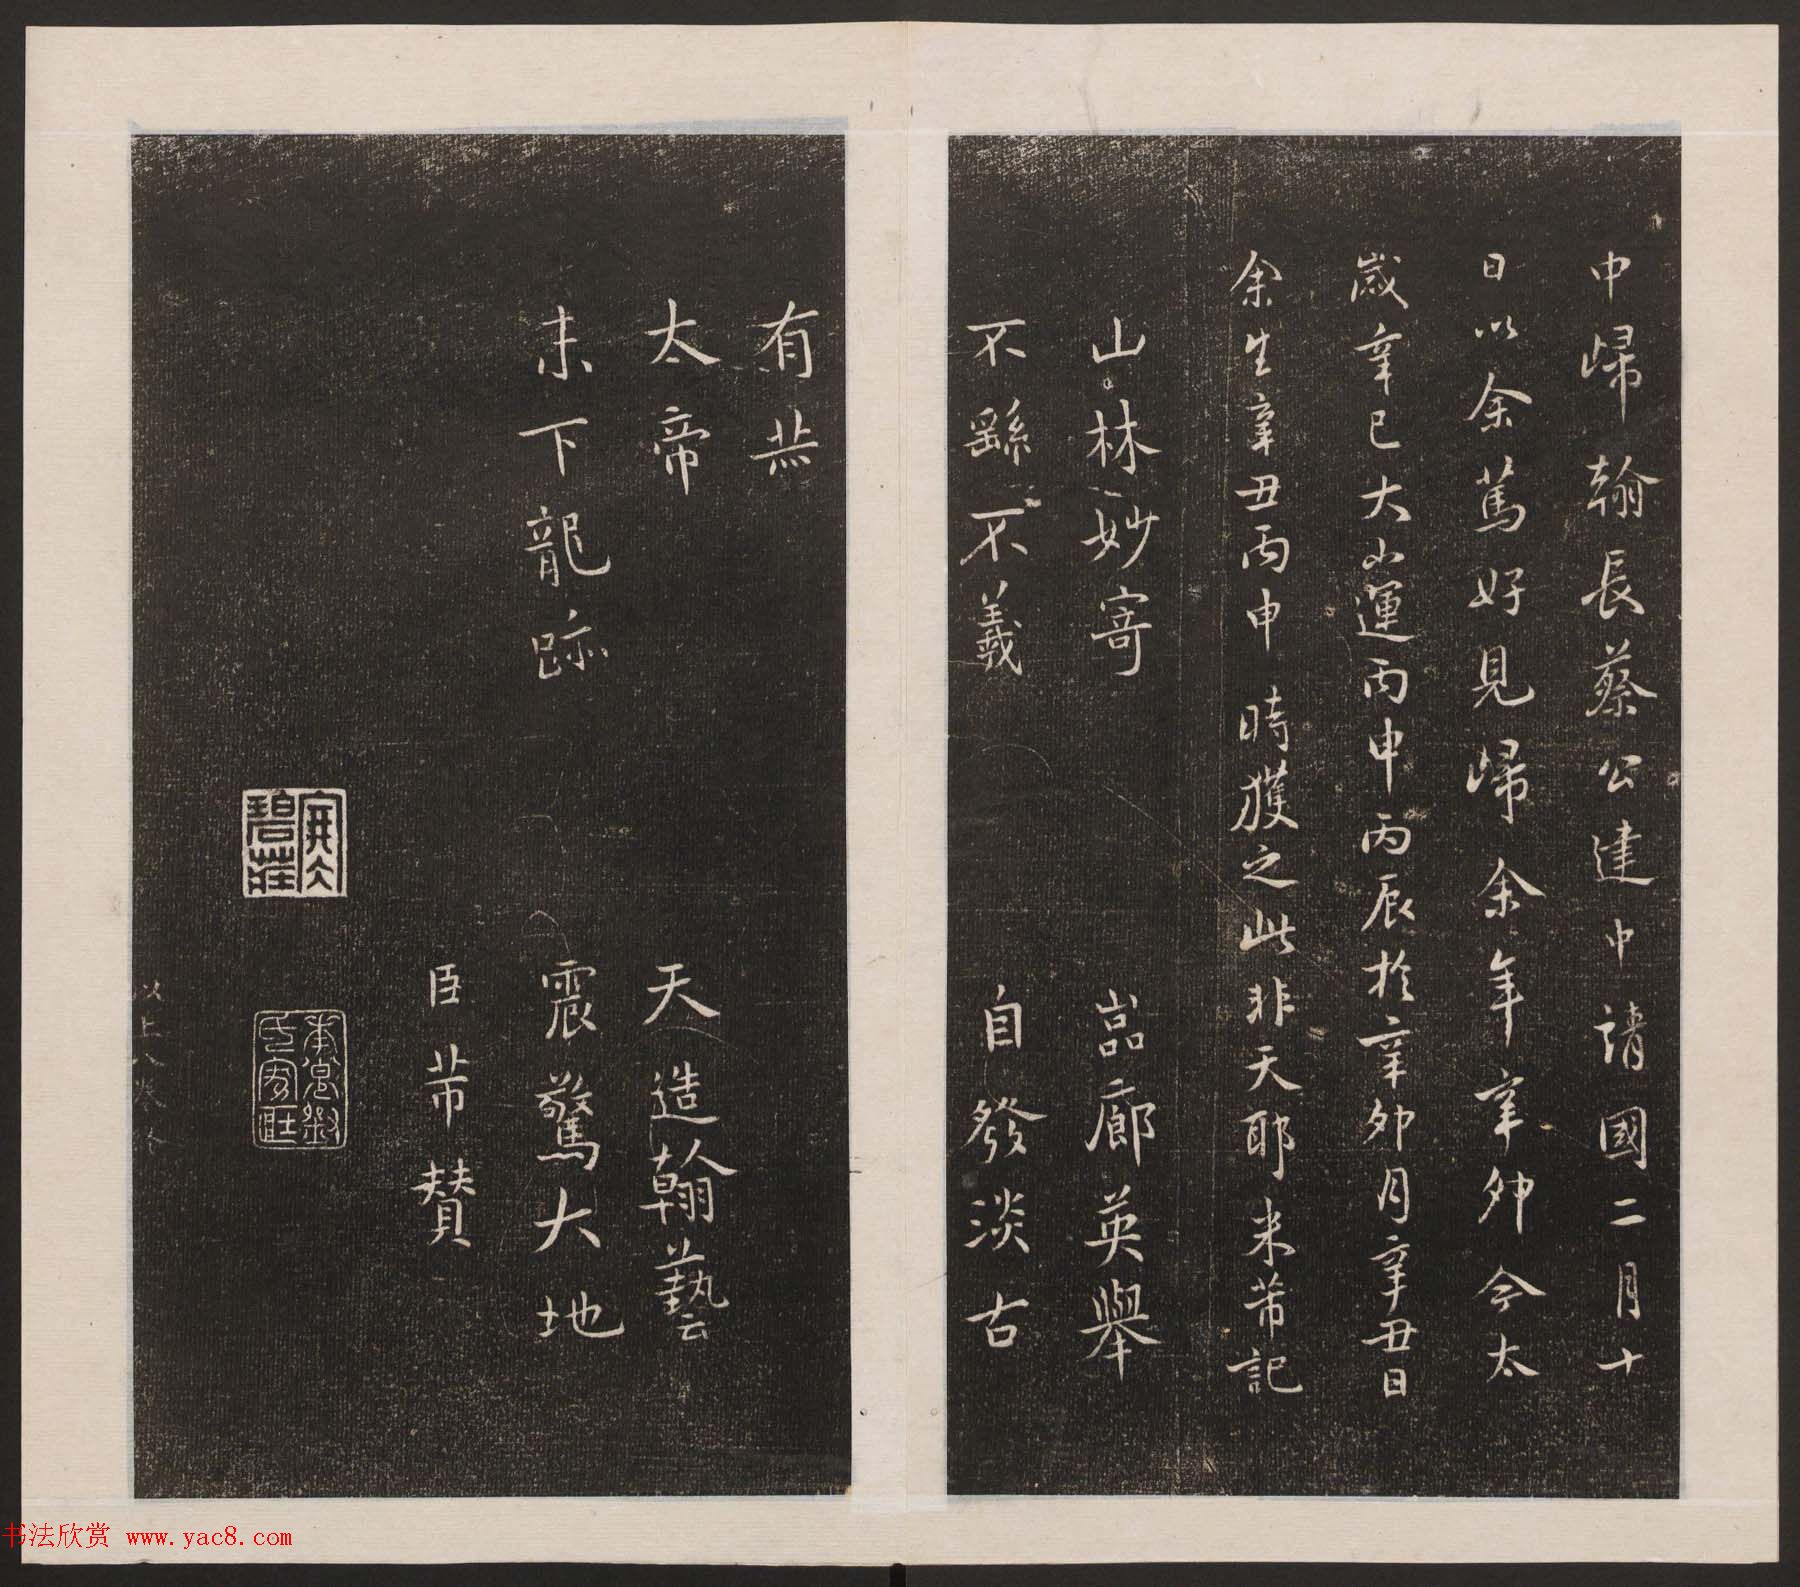 中歸翰長蔡公建中靖國二月十
日以余篤好見歸余年辛卯今太
歲辛巳大小運丙申丙辰於辛卯月辛丑日
余生辛丑丙申時獲之此非天耶米芾記
山林妙寄 嵓廊英舉
不繇不羲 自發淡古
有烝
太帝 天造翰藝
末下龍跡 震驚大地
臣芾贊
以上八
书法欣赏 www.yac8.com